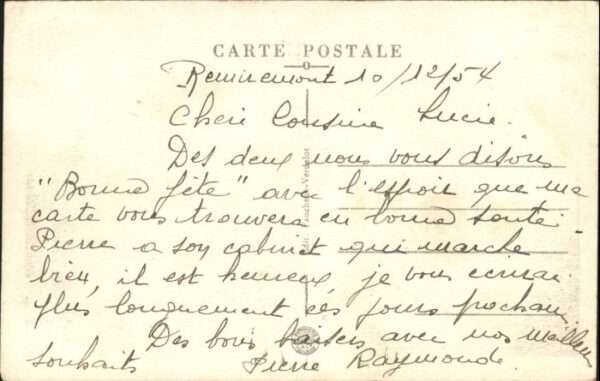 CARTE POSTALE
Remiremont 10/12/54
Cheri Cousine Lucie.
Des deux nous vous disons
"Bonne fête" avec l'espoir que ma
carte vous trouvera en bonne santé.
Pierre a son cabinet qui marche
bien, il est heureux je vous écrirai
plus longuement ces jours prochain.
Des bons baisers avec nos meilleurs
souhaits Pierre Raymonde.